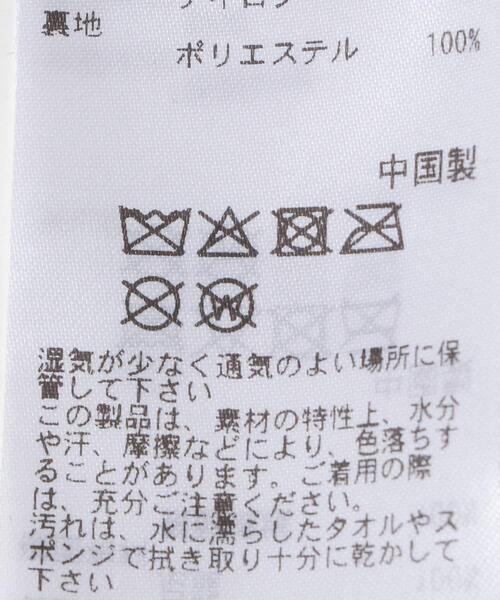 裏地
ポリエステル 100%
中国製
W
湿気が少なく通気のよい場所に保
管して下さい
この製品は、素材の特性上、水分
や汗、摩擦などにより、色落ちす
ることがあります。ご着用の際
は、充分ご注意ください。
汚れは、水に濡らしたタオルやス
ポンジで拭き取り十分に乾かして
下さい